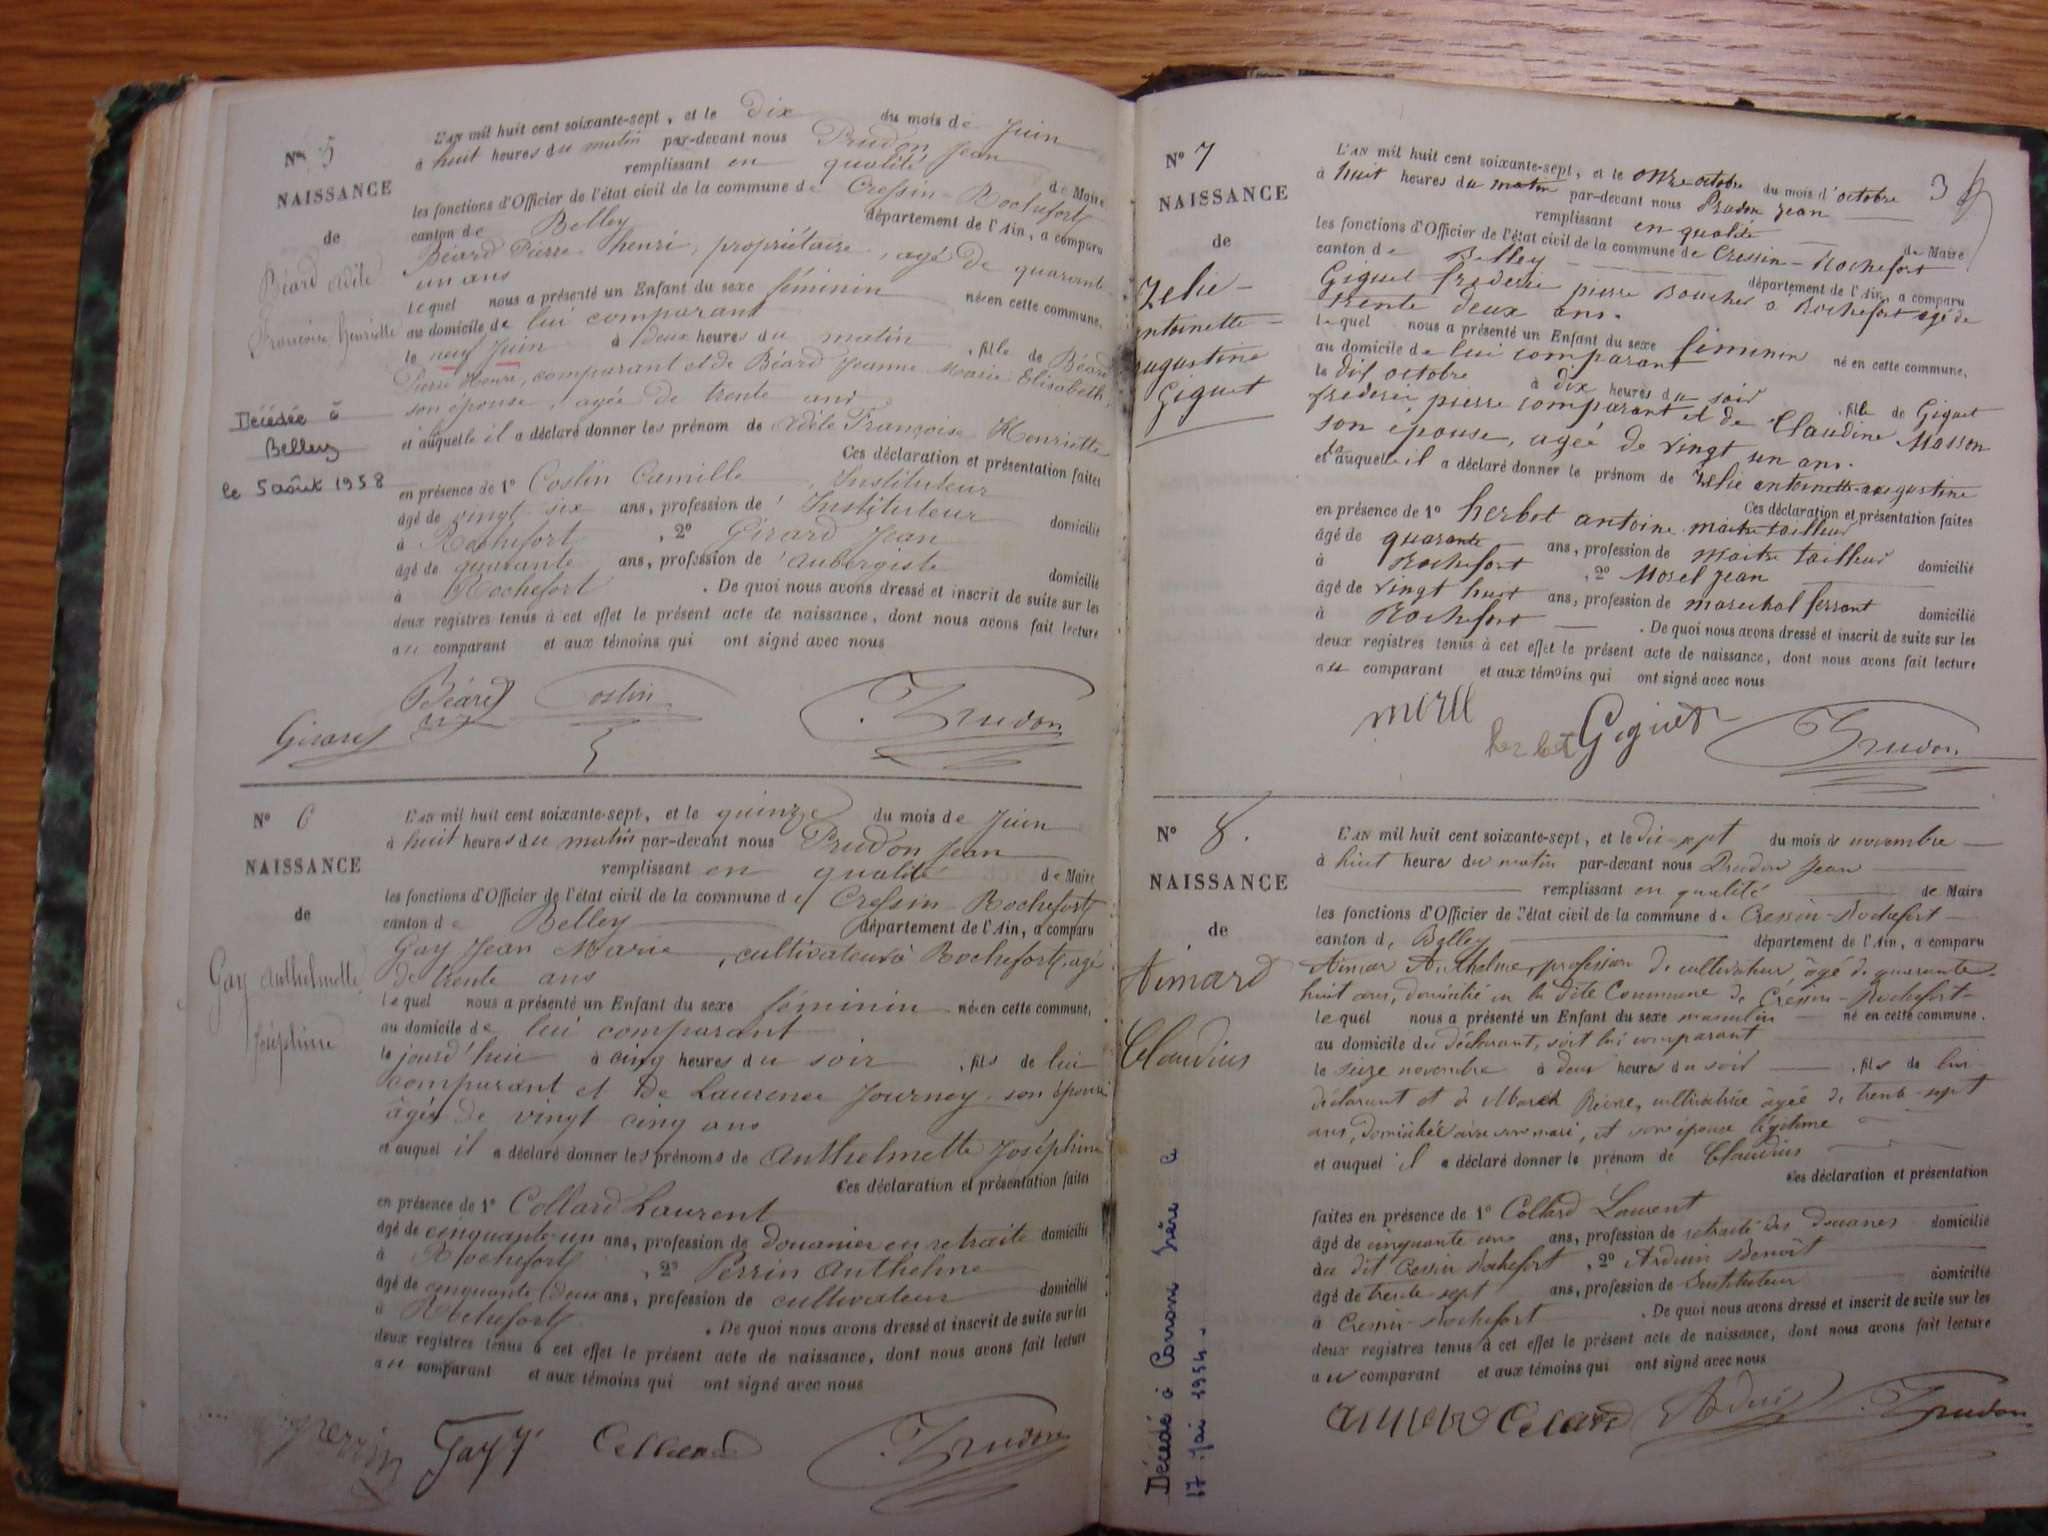 N° 5
NAISSANCE
de
Béard Adèle
Françoise Henriette
Décédée à
Belley
le 5 août 1958
L'AN mil huit cent soixante-sept, et le dix du mois de Juin
à huit heures du matin par-devant nous Prudon Jean
remplissant en qualité de Maire
les fonctions d'Officier de l'état civil de la commune de Cressin-Rochefort
canton de Belley département de l'Ain, a comparu
Béard Pierre henri, propriétaire, agé de quarante
un ans
lequel nous a présenté un Enfant du sexe féminin née en cette commune,
au domicile de lui comparant
le neuf Juin à deux heures du matin, fille de Béard
Pierre Henri, comparant et de Béard Jeanne Marie Elisabeth,
son épouse, agée de trente ans
et auquelle il a déclaré donner les prénom de Adèle Françoise Henriette
Ces déclaration et présentation faites
en présence de 1° Costin Camille, Instituteur
âgé de vingt six ans, profession de Instituteur domicilié
à Rochefort, 2° Girard Jean
âgé de quarante ans, profession de aubergiste domicilié
à Rochefort. De quoi nous avons dressé et inscrit de suite sur les
deux registres tenus à cet effet le présent acte de naissance, dont nous avons fait lecture
au comparant et aux témoins qui ont signé avec nous
Béard Costin
Girard Prudon
N° 6
NAISSANCE
de
Gay Anthelmette
Joséphine
L'AN mil huit cent soixante-sept, et le quinze du mois de Juin
à huit heures du matin par-devant nous Prudon Jean
remplissant en qualité de Maire
les fonctions d'Officier de l'état civil de la commune de Cressin-Rochefort
canton de Belley département de l'Ain, a comparu
Gay Jean Marie, cultivateur à Rochefort, agé
de trente ans
lequel nous a présenté un Enfant du sexe féminin née en cette commune,
au domicile de lui comparant
le jourd'hui à cinq heures du soir, fils de lui
comparant et de Laurence Journey son épouse
âgée de vingt cinq ans
et auquel il a déclaré donner les prénoms de Anthelmette Joséphine
Ces déclaration et présentation faites
en présence de 1° Collard Laurent
âgé de cinquante-un ans, profession de douanier en retraite domicilié
à Rochefort, 2° Perrin Anthelme
âgé de cinquante deux ans, profession de cultivateur domicilié
à Rochefort. De quoi nous avons dressé et inscrit de suite sur les
deux registres tenus à cet effet le présent acte de naissance, dont nous avons fait lecture
au comparant et aux témoins qui ont signé avec nous
perrin Gay Prudon
N° 7
NAISSANCE
de
Zelie
antoinette
augustine
Giguet
3
L'AN mil huit cent soixante-sept, et le onze octobre du mois d'octobre
à huit heures du matin par-devant nous Prudon Jean
remplissant en qualité de Maire
les fonctions d'Officier de l'état civil de la commune de Cressin-Rochefort
canton de Belley département de l'Ain, a comparu
Giguet frederic pierre Boucher à Rochefort agé de
trente deux ans.
lequel nous a présenté un Enfant du sexe féminin né en cette commune,
au domicile de lui comparant
le dix octobre à dix heures du soir, fille de Giguet
frederic pierre comparant et de Claudine Masson
son épouse, agée de vingt un ans.
et à laquelle il a déclaré donner le prénom de Zelie antoinette augustine
Ces déclaration et présentation faites
en présence de 1° herbet antoine maitre tailleur
âgé de quarante ans, profession de maitre tailleur domicilié
à Rochefort, 2° Morel jean
âgé de vingt huit ans, profession de marechal ferrant domicilié
à Rochefort. De quoi nous avons dressé et inscrit de suite sur les
deux registres tenus à cet effet le présent acte de naissance, dont nous avons fait lecture
au comparant et aux témoins qui ont signé avec nous
morel
herbet Giguet Prudon
N° 8.
NAISSANCE
de
Aimard
Claudius
Décédé à
17 1954.
L'AN mil huit cent soixante-sept, et le dix-sept du mois de novembre
à huit heures du matin par-devant nous Prudon Jean
remplissant en qualité de Maire
les fonctions d'Officier de l'état civil de la commune de Cressin-Rochefort
canton de Belley département de l'Ain, a comparu
Aimar Anthelme, profession de cultivateur âgé de quarante-
huit ans, domicilié en la dite Commune de Cressin-Rochefort
lequel nous a présenté un Enfant du sexe masculin né en cette commune.
au domicile du déclarant, soit lui comparant
le seize novembre à deux heures du soir, fils de lui
déclarant et de Morel cultivatrice âgée de trente-sept
ans, domiciliée avec son mari, et son épouse légitime
et auquel il a déclaré donner le prénom de Claudius
Ces déclaration et présentation
faites en présence de 1° Collard Laurent
âgé de cinquante un ans, profession de retraité des douanes domicilié
au dit Cressin-Rochefort, 2° Arduin Benoît
âgé de trente-sept ans, profession de Instituteur domicilié
à Cressin-Rochefort. De quoi nous avons dressé et inscrit de suite sur les
deux registres tenus à cet effet le présent acte de naissance, dont nous avons fait lecture
au comparant et aux témoins qui ont signé avec nous
Prudon